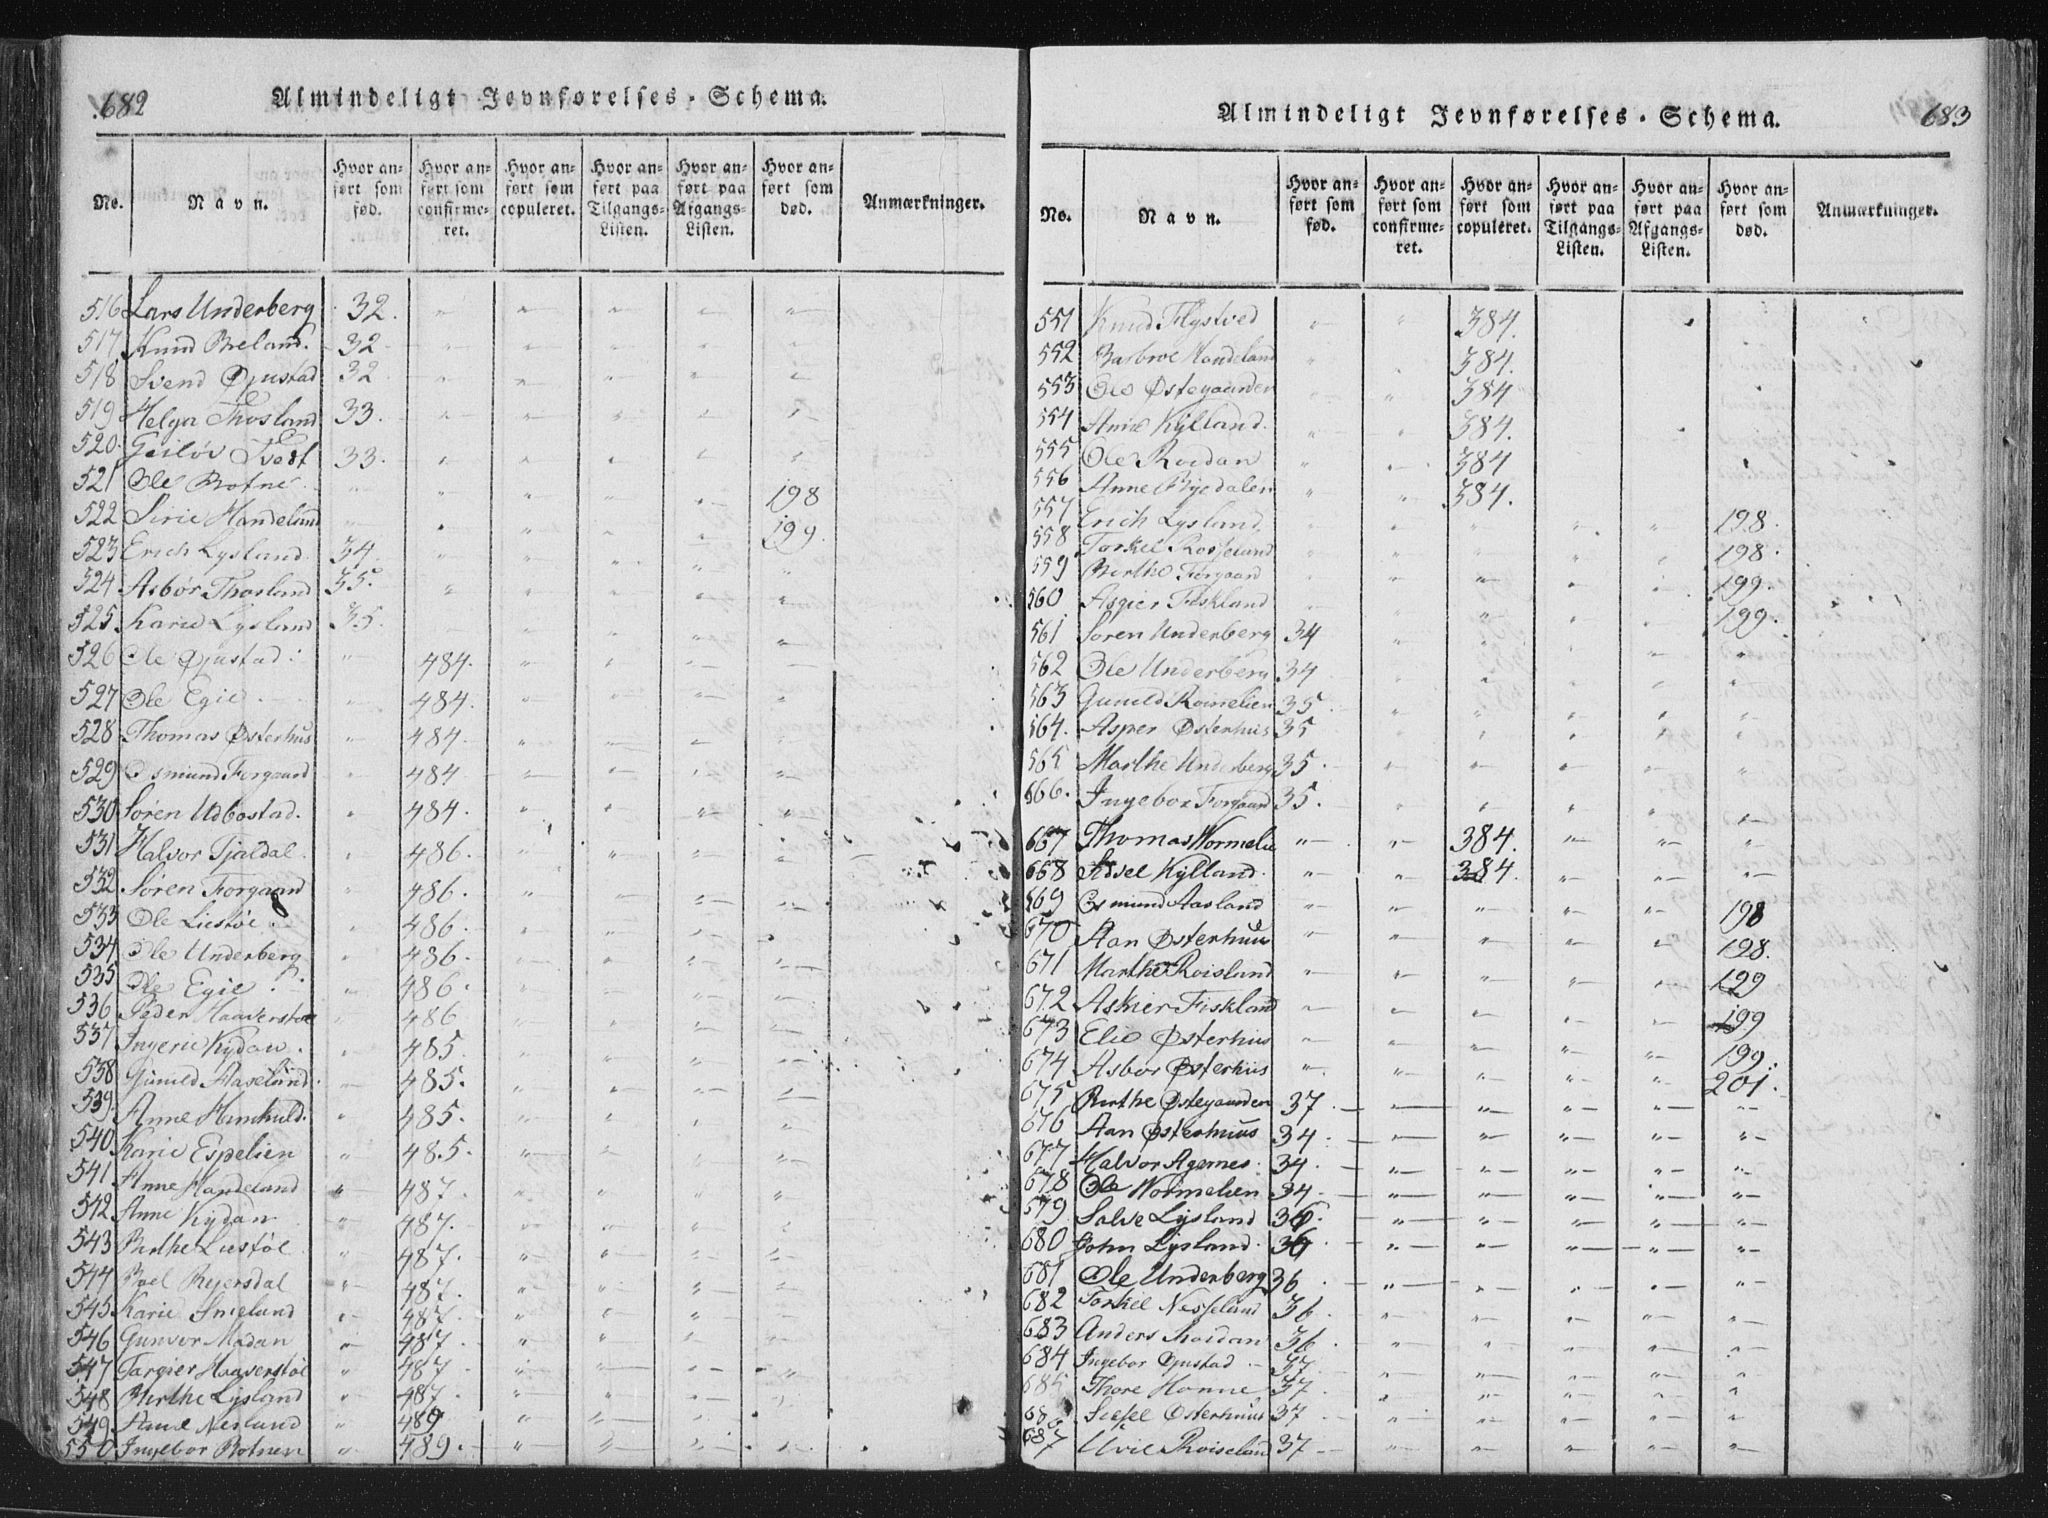 682
Almindeligt Jevnførelses-Schema.
No.
Navn.
Hvor anført som fød.
Hvor anført som confirmeret.
Hvor anført som copuleret.
Hvor anført paa Tilgangs-Listen.
Hvor anført paa Afgangs-Listen.
Hvor anført som død.
Anmærkninger.
516 Lars Underberg 32.
517 Knud Breland. 32
518 Svend Øjustad 32
519 Helga Thosland 33.
520. Geiløv Tvedt 33.
521 Ole Botne 198
522 Sirie Handeland 199.
523 Erich Lysland. 34.
524 Asbør Thosland 35.
525 Karie Lysland 35.
526 Ole Øjustad. 484.
527 Ole Egie 484.
528 Thomas Østerhus 484.
529 Osmund Forgaard 484.
530 Søren Udbostad. 484.
531 Halvor Tjaldal. 486.
532 Søren Forgaard 486.
533 Ole Liestøe. 486.
534 Ole Underberg 486.
535 Ole Egie 486.
536 Peder Haaverstøe 486
537 Ingerie Kydan. 485.
538 Gunild Aaseland. 485.
539. Anne Hamkuld. 485.
540 Karie Espelien 485.
541 Anne Handeland 487.
542 Anne Kydan 487.
543 Birthe Liestøl 487.
544 Boel Ryersdal 487.
545 Karie Smelund 487.
546 Gunvor Madan 487
547 Targier Haaverstøl 487
548 Birthe Lysland 487.
549 Aanl Nesland 489
550 Ingebor Botnen 489.
Almindeligt Jevnførelses-Schema.
683
No.
Navn.
Hvor anført som fød.
Hvor anført som confirmeret.
Hvor anført som copuleret.
Hvor anført paa Tilgangs-Listen.
Hvor anført paa Afgangs-Listen.
Hvor anført som død.
Anmærkninger.
551 Knud Flystved 384.
552 Barbroe Handeland 384.
553 Ole Østegaarden 384
554 Anne Kylland. 384.
555 Ole Roidan 384
556 Anne Byedalen 384.
557 Erich Lysland. 198.
558 Torkel Rosseland 198.
559 Berthe Forgaard 199.
560 Asgier Fiskland 199.
561 Søren Underberg 34
562 Ole Underberg 34
563 Gunild Romelien 35.
564. Asper Østerhus 35
565 Marthe Underberg 35.
566. Ingebor Forgaard 35.
667 Thomas Wormelie 384.
668 Sidsel Kylland. 384.
669 Osmund Aasland 198
670 Aan Østerhuus 198.
671 Marthe Roisland 199
672 Askier Fiskland 199
673 Elie Østerhus 199.
674 Asbør Østerhus 201.
675 Birthe Østegaarden 37
676 Aan Østerhuus 34.
677 Halvor Agernes. 34.
678 Ole Wormelien 34
679 Salve Lysland 36.
680 John Lysland. 36
681 Ole Underberg 36
682 Torkel Nesseland 36
683 Anders Roidan 36
684 Ingebor Øjustad 37
685 Thore Honne 37
686 Sidsel Østerhuus 37
687 Uvie Roiseland 37